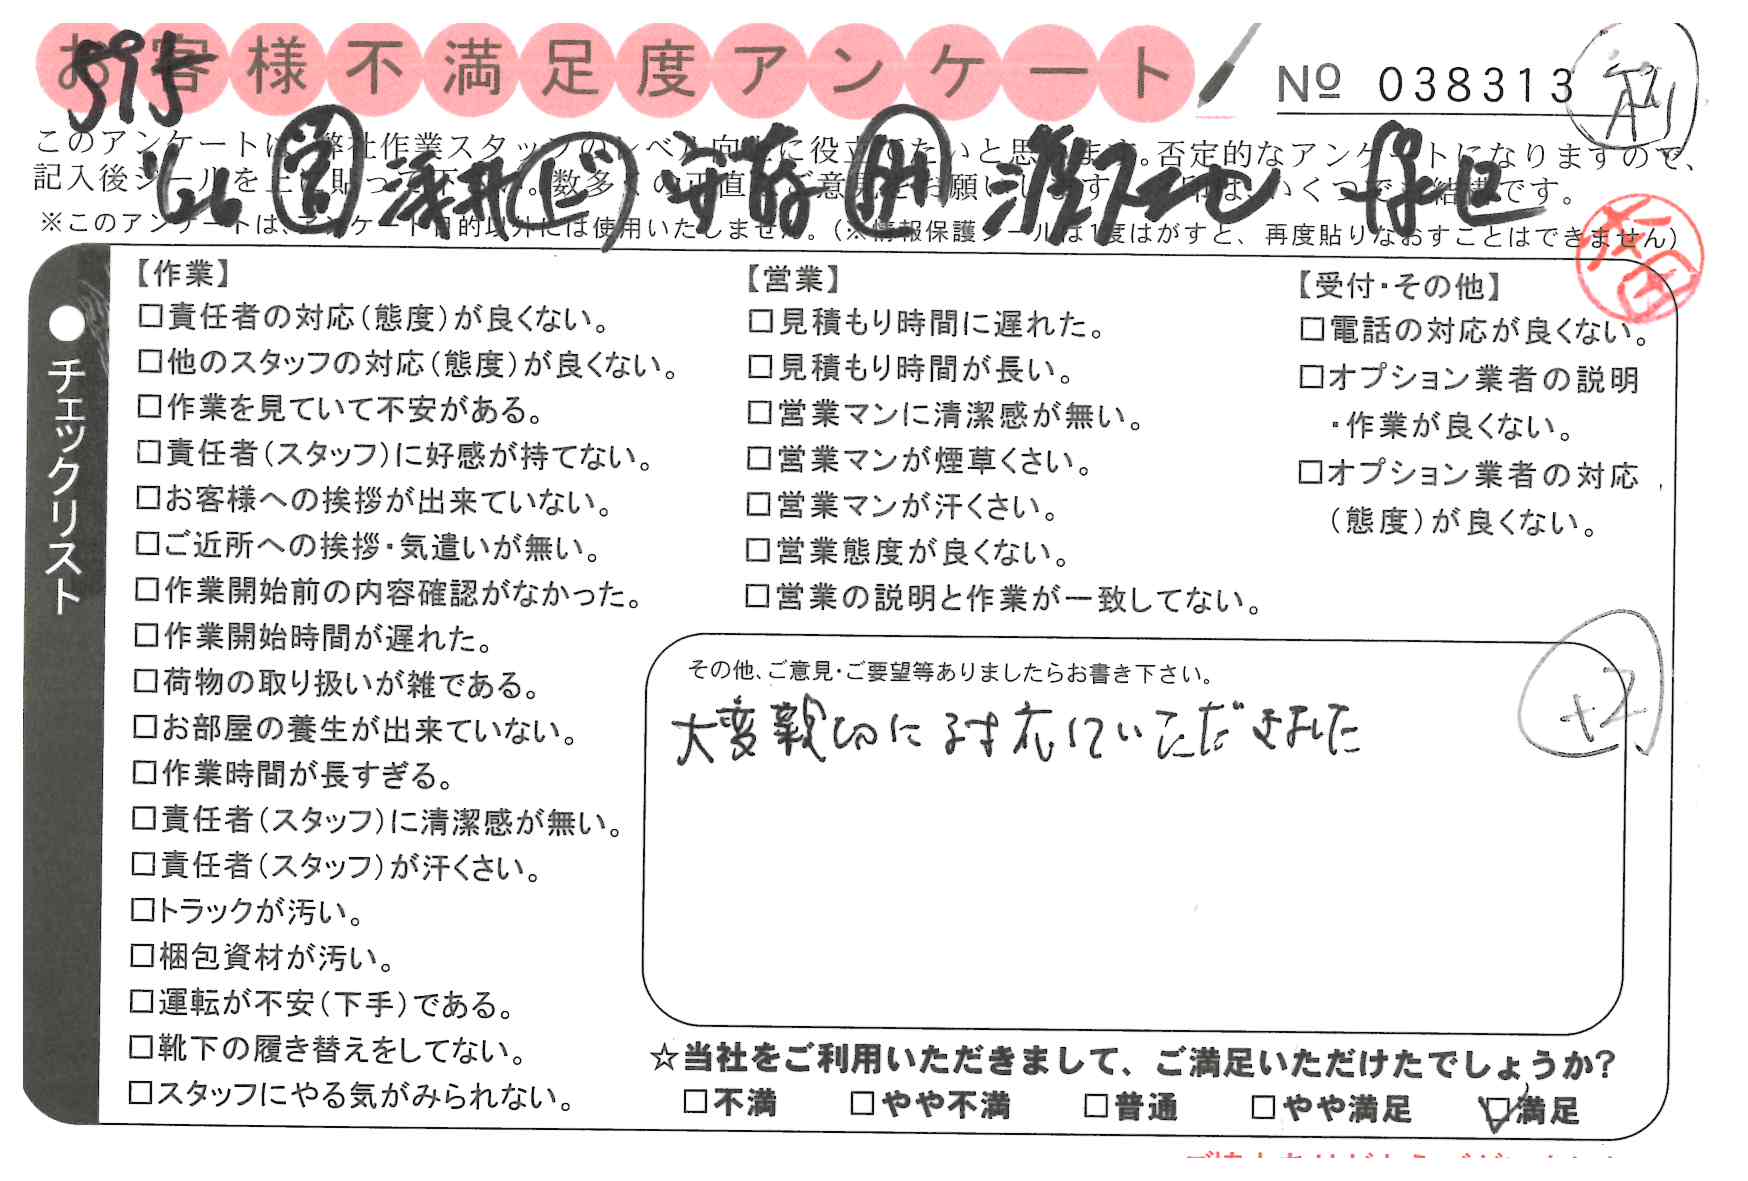 お客様不満足度アンケート
595
№ 038313
このアンケートは、弊社作業スタッフのレベル向上に役立てたいと思います。否定的なアンケートになりますので、
記入後シールを上に貼って下さい。数多くの正直なご意見をお願いします
いくつでも結構です。
※このアンケートは、アンケート目的以外には使用いたしません。(※情報保護シールは1度はがすと、再度貼りなおすことはできません)
●チェックリスト
【作業】
□責任者の対応(態度)が良くない。
□他のスタッフの対応(態度)が良くない。
□作業を見ていて不安がある。
□責任者(スタッフ)に好感が持てない。
□お客様への挨拶が出来ていない。
□ご近所への挨拶・気遣いが無い。
□作業開始前の内容確認がなかった。
□作業開始時間が遅れた。
□荷物の取り扱いが雑である。
□お部屋の養生が出来ていない。
□作業時間が長すぎる。
□責任者(スタッフ)に清潔感が無い。
□責任者(スタッフ)が汗くさい。
□トラックが汚い。
□梱包資材が汚い。
□運転が不安(下手)である。
□靴下の履き替えをしてない。
□スタッフにやる気がみられない。
【営業】
□見積もり時間に遅れた。
□見積もり時間が長い。
□営業マンに清潔感が無い。
□営業マンが煙草くさい。
□営業マンが汗くさい。
□営業態度が良くない。
□営業の説明と作業が一致してない。
【受付・その他】
□電話の対応が良くない。
□オプション業者の説明
・作業が良くない。
□オプション業者の対応
(態度)が良くない。
その他、ご意見・ご要望等ありましたらお書き下さい。
大変親切に対応していただきました
+2
☆当社をご利用いただきまして、ご満足いただけたでしょうか?
□不満 □やや不満 □普通 □やや満足 ☑満足